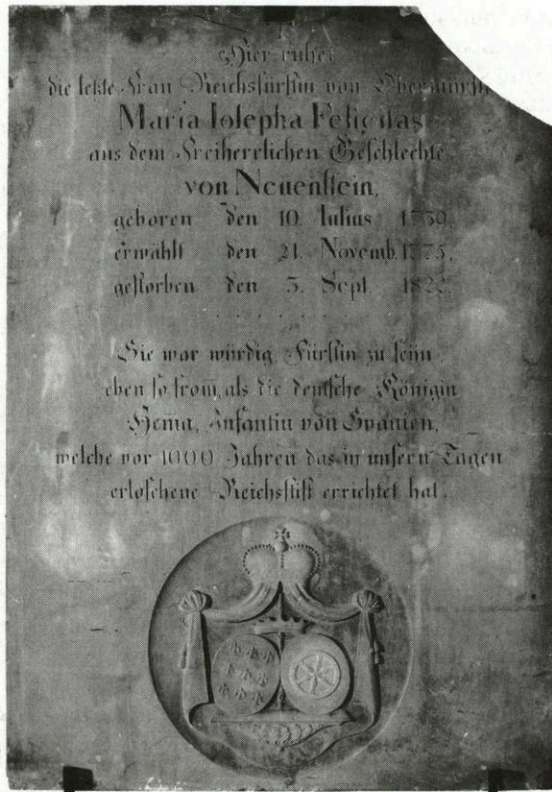 Hier ruhet
die letzte Frau Reichsfürstin von Obermünst
Maria Iosepha Felicitas
aus dem Freiherrlichen Geschlechte
von Neuenstein,
geboren den 10. Iulius 1739.
erwählt den 21. Novemb. 1775.
gestorben den 3. Sept. 1822.
Sie war würdig Fürstin zu seÿn,
eben so from, als die deutsche Königin
Hem̅a, Infantin von Spanien,
welche vor 1000 Jahren das in unsern Tagen
erloschene Reichsstift errichtet hat.